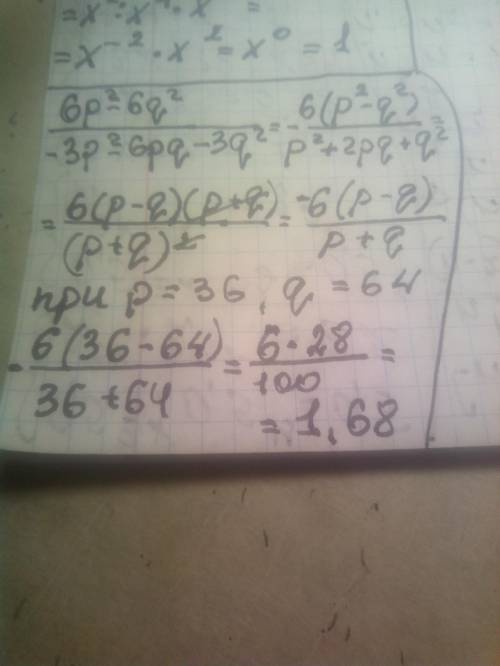 = x⁻² · x² = x⁰ = 1
6p² - 6q² / -3p² - 6pq - 3q² = - 6(p² - q²) / p² + 2pq + q² =
= 6(p - q)(p + q) / (p + q)² = -6(p - q) / p + q
при p = 36, q = 64
- 6(36 - 64) / 36 + 64 = 6 · 28 / 100 =
= 1,68